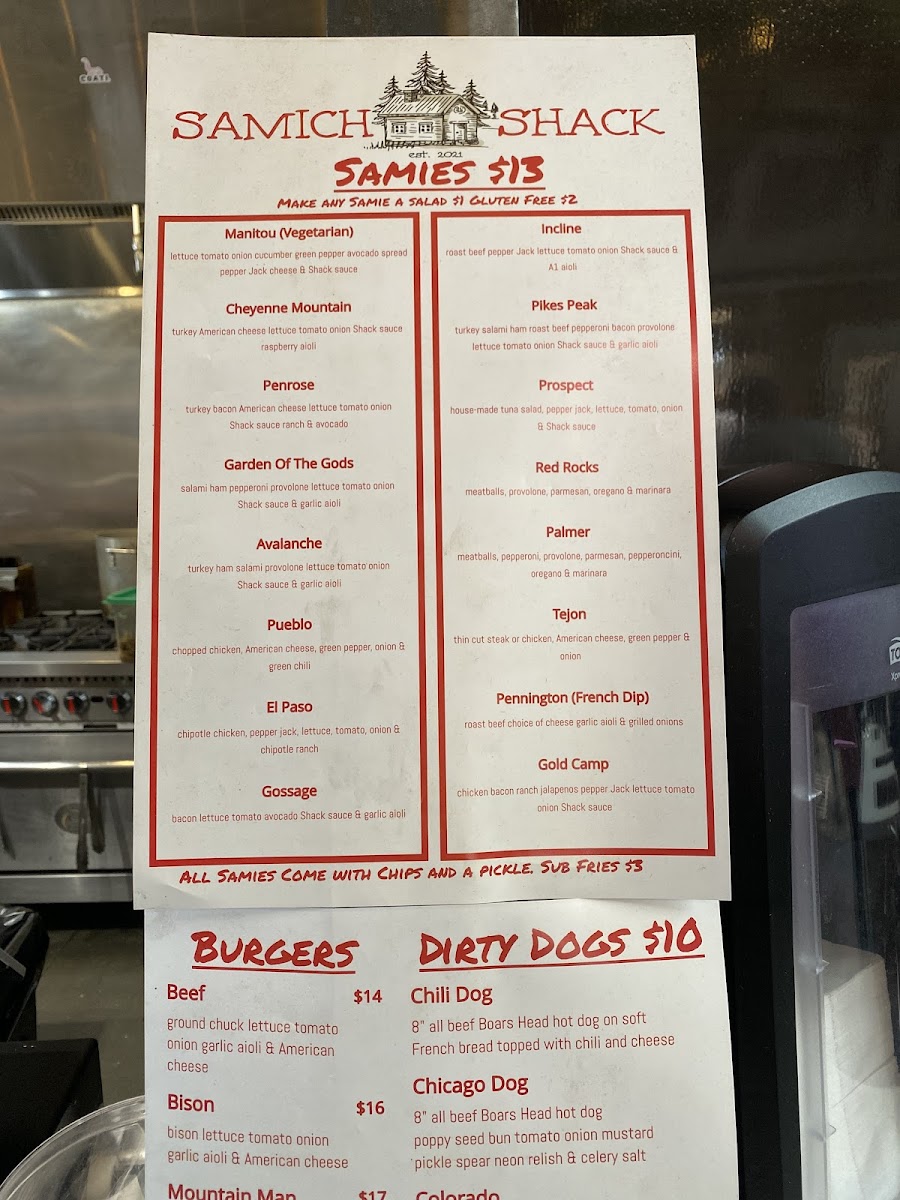 COATI
SAMICH SHACK
est. 2021
SAMIES $13
MAKE ANY SAMIE A SALAD $1 GLUTEN FREE $2
Manitou (Vegetarian)
lettuce tomato onion cucumber green pepper avocado spread
pepper Jack cheese & Shack sauce
Cheyenne Mountain
turkey American cheese lettuce tomato onion Shack sauce
raspberry aioli
Penrose
turkey bacon American cheese lettuce tomato onion
Shack sauce ranch & avocado
Garden Of The Gods
salami ham pepperoni provolone lettuce tomato onion
Shack sauce & garlic aioli
Avalanche
turkey ham salami provolone lettuce tomato onion
Shack sauce & garlic aioli
Pueblo
chopped chicken, American cheese, green pepper, onion &
green chili
El Paso
chipotle chicken, pepper jack, lettuce, tomato, onion &
chipotle ranch
Gossage
bacon lettuce tomato avocado Shack sauce & garlic aioli
Incline
roast beef pepper Jack lettuce tomato onion Shack sauce &
A1 aioli
Pikes Peak
turkey salami ham roast beef pepperoni bacon provolone
lettuce tomato onion Shack sauce & garlic aioli
Prospect
house-made tuna salad, pepper jack, lettuce, tomato, onion
& Shack sauce
Red Rocks
meatballs, provolone, parmesan, oregano & marinara
Palmer
meatballs, pepperoni, provolone, parmesan, pepperoncini,
oregano & marinara
Tejon
thin cut steak or chicken, American cheese, green pepper &
onion
Pennington (French Dip)
roast beef choice of cheese garlic aioli & grilled onions
Gold Camp
chicken bacon ranch jalapenos pepper Jack lettuce tomato
onion Shack sauce
ALL SAMIES COME WITH CHIPS AND A PICKLE. SUB FRIES $3
BURGERS
Beef $14
ground chuck lettuce tomato
onion garlic aioli & American
cheese
Bison $16
bison lettuce tomato onion
garlic aioli & American cheese
Mountain Man $17
DIRTY DOGS $10
Chili Dog
8" all beef Boars Head hot dog on soft
French bread topped with chili and cheese
Chicago Dog
8" all beef Boars Head hot dog
poppy seed bun tomato onion mustard
pickle spear neon relish & celery salt
Colorado